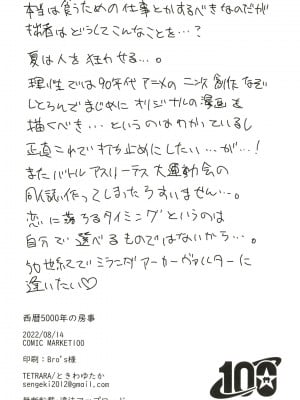 本当は食うための仕事とかするべきなのだが
拙者はどうしてこんなことを…?
夏は人を狂わせる…。
理性では90年代アニメの二次創作なぞ
しとらんでまじめにオリジナルの漫画を
描くべき…というのはわかっているし
正直これで打ち止めにしたい…が…!
またバトルアスリーテス大運動会の
同人誌作ってしまったらすいません…。
恋に落ちるタイミングというのは
自分で選べるものではないから…。
50世紀でミランダアーカーヴァルターに
逢いたい♡
西暦5000年の房事
2022/08/14
COMIC MARKET100
印刷:Bro's様
TETRARA/ときわゆたか
sengeki2012@gmail.com
無断転載・違法アップロード
100